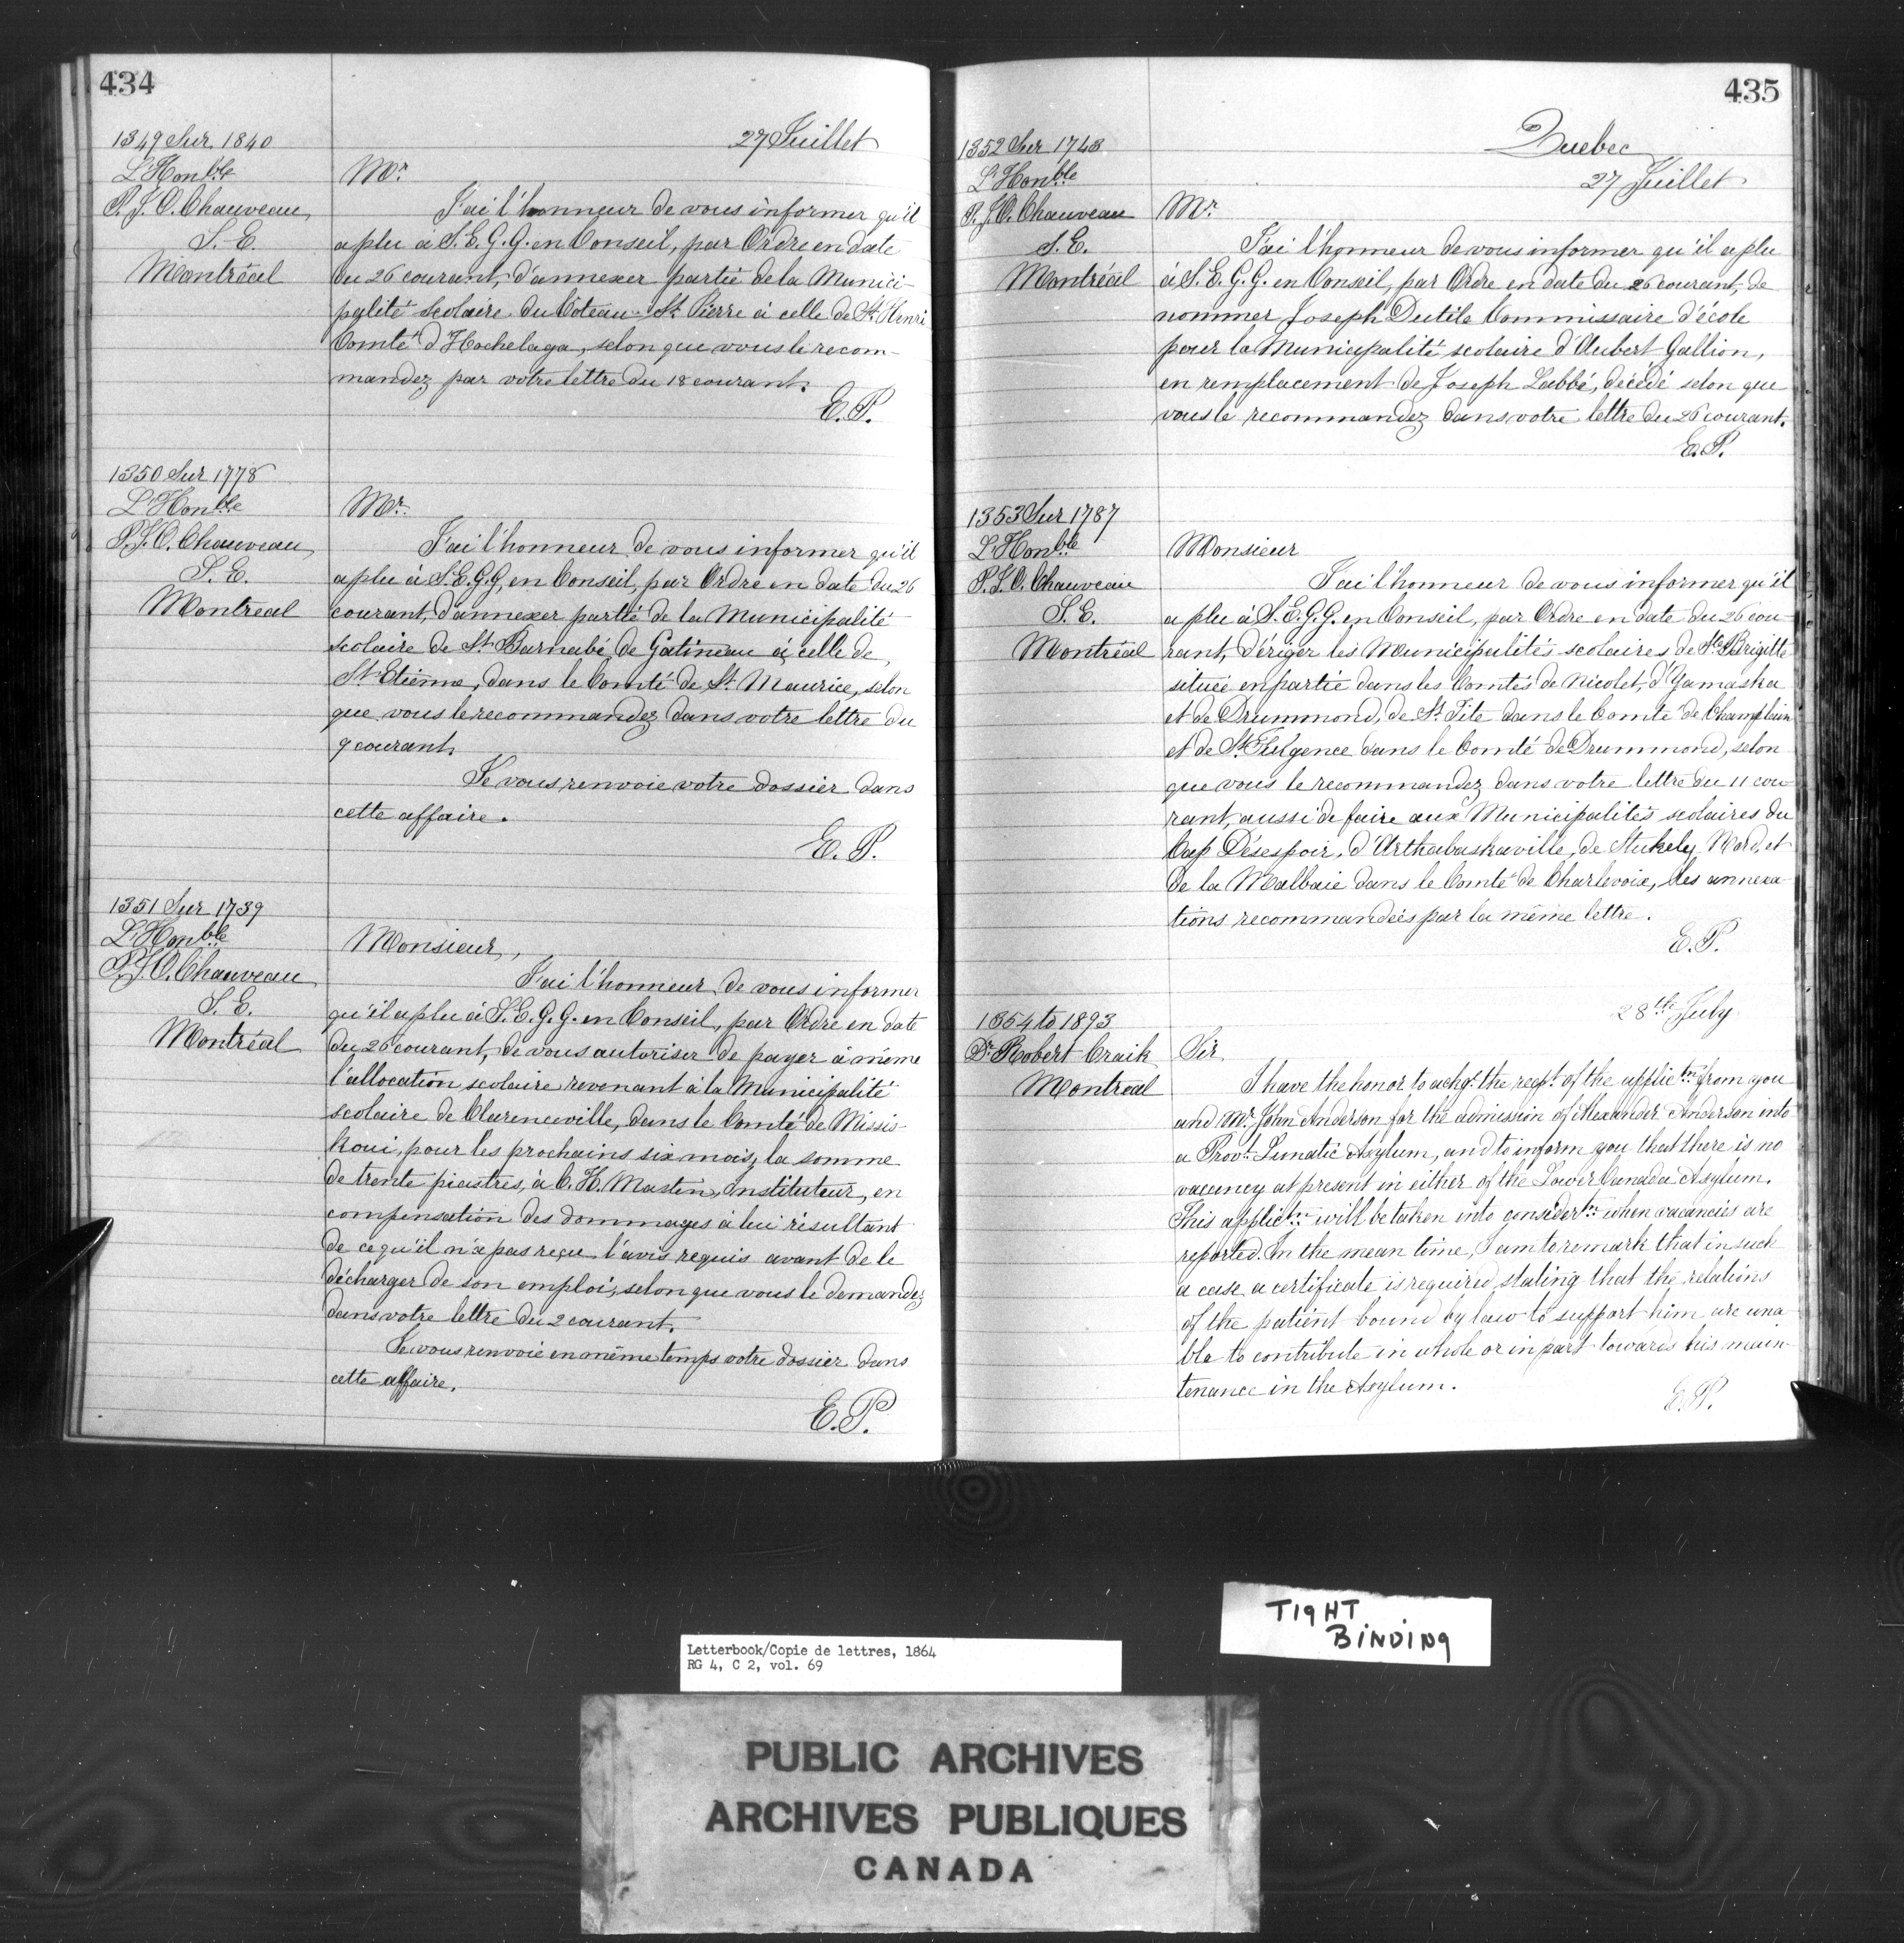 434
27 Juillet
1349 Sur 1840
L'Honble
P. J. O. Chauveau
S. E.
Montréal
Mr
J'ai l'honneur de vous informer qu'il
a plu à S. E. G. G. en Conseil, par Ordre en date
du 26 courant, d'annexer partie de la Munici-
palité scolaire du Coteau St. Pierre à celle de St. Henri
Comté d'Hochelaga, selon que vous le recom-
mandez par votre lettre du 18 courant.
E. P.
1350 Sur 1778
L'Honble
P. J. O. Chauveau
S. E.
Montreal
Mr.
J'ai l'honneur de vous informer qu'il
a plu à S. E. G. G. en Conseil, par Ordre en date du 26
courant, d'annexer partie de la Municipalité
scolaire de St. Barnabé de Gatineau à celle de
St. Etienne, dans le Comté de St. Maurice, selon
que vous le recommandez dans votre lettre du
9 courant.
Je vous renvoie votre dossier dans
cette affaire.
E. P.
1351 Sur 1739
L'Honble
P. J. O. Chauveau
S. E.
Montréal
Monsieur,
J'ai l'honneur de vous informer
qu'il a plu à S. E. G. G. en Conseil, par Ordre en date
du 26 courant, de vous autoriser de payer à même
l'allocation scolaire revenant à la Municipalité
scolaire de Clarenceville, dans le Comté de Missis-
koui, pour les prochains six mois, la somme
de trente piastres, à C. H. Mastin, Instituteur, en
compensation des dommages à lui résultant
de ce qu'il n'a pas reçu l'avis requis avant de le
décharger de son emploi, selon que vous le demandez
dans votre lettre du 2 courant.
Je vous renvoie en même temps votre dossier dans
cette affaire.
E. P.
435
Quebec
27 Juillet
1352 Sur 1743
L'Honble
P. J. O. Chauveau
S. E.
Montréal
Mr
J'ai l'honneur de vous informer qu'il a plu
à S. E. G. G. en Conseil, par Ordre en date du 26 courant, de
nommer Joseph Dutile Commissaire d'école
pour la Municipalité scolaire d'Aubert Gallion,
en remplacement de Joseph Labbé, décédé selon que
vous le recommandez dans votre lettre du 26 courant.
E. P.
1353 Sur 1787
L'Honble
P. J. O. Chauveau
S. E.
Montréal
Monsieur
J'ai l'honneur de vous informer qu'il
a plu à S. E. G. G. en Conseil, par Ordre en date du 26 cou-
rant, d'ériger les Municipalités scolaires de Ste Brigitte
située en partie dans les Comtés de Nicolet, d'Yamaska
et de Drummond, de St. Tite dans le Comté de Champlain
et de St. Fulgence dans le Comté de Drummond, selon
que vous le recommandez dans votre lettre du 11 cou-
rant, aussi de faire aux Municipalités scolaires du
Cap Désespoir, d'Arthabaskaville, de Stukely Nord, et
de la Malbaie dans le Comté de Charlevoix, les annexa-
tions recommandées par la même lettre.
E. P.
28th July
1354 to 1893
Dr. Robert Craik
Montréal
Sir
I have the honor to ackge. the recpt. of the applictn. from you
and Mr. John Anderson for the admission of Alexander Anderson into
a Provl. Lunatic Asylum, and to inform you that there is no
vacancy at present in either of the Lower Canada Asylum.
This applictn. will be taken into considertn. when vacancies are
reported. In the mean time, I am to remark that in such
a case a certificate is required stating that the relations
of the patient bound by law to support him are una-
ble to contribute in whole or in part towards his main-
tenance in the Asylum.
E. P.
TIGHT
BINDING
Letterbook/Copie de lettres, 1864
RG 4, C 2, vol. 69
PUBLIC ARCHIVES
ARCHIVES PUBLIQUES
CANADA